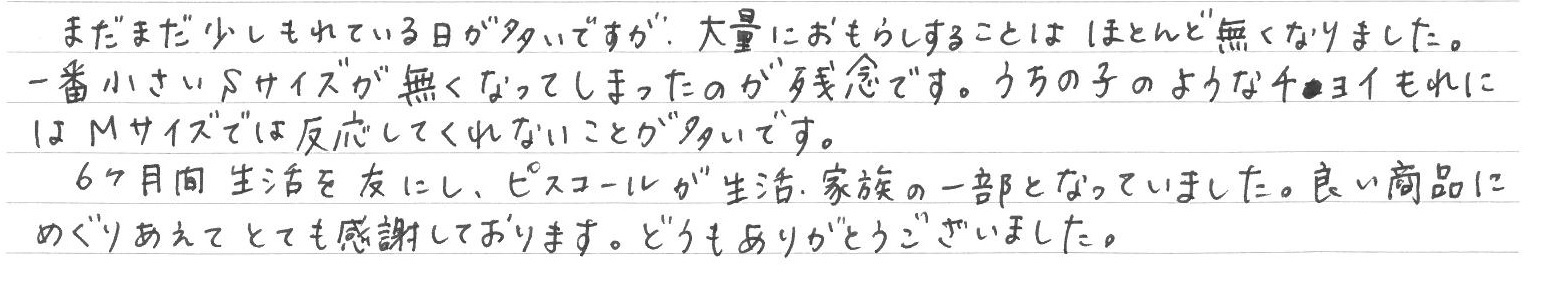 まだまだ少しもれている日が多いですが、大量におもらしすることはほとんど無くなりました。
一番小さいSサイズが無くなってしまったのが残念です。うちの子のようなチョイもれに
はMサイズでは反応してくれないことが多いです。
6ヶ月間生活を友にし、ピスコールが生活・家族の一部となっていました。良い商品に
めぐりあえてとても感謝しております。どうもありがとうございました。